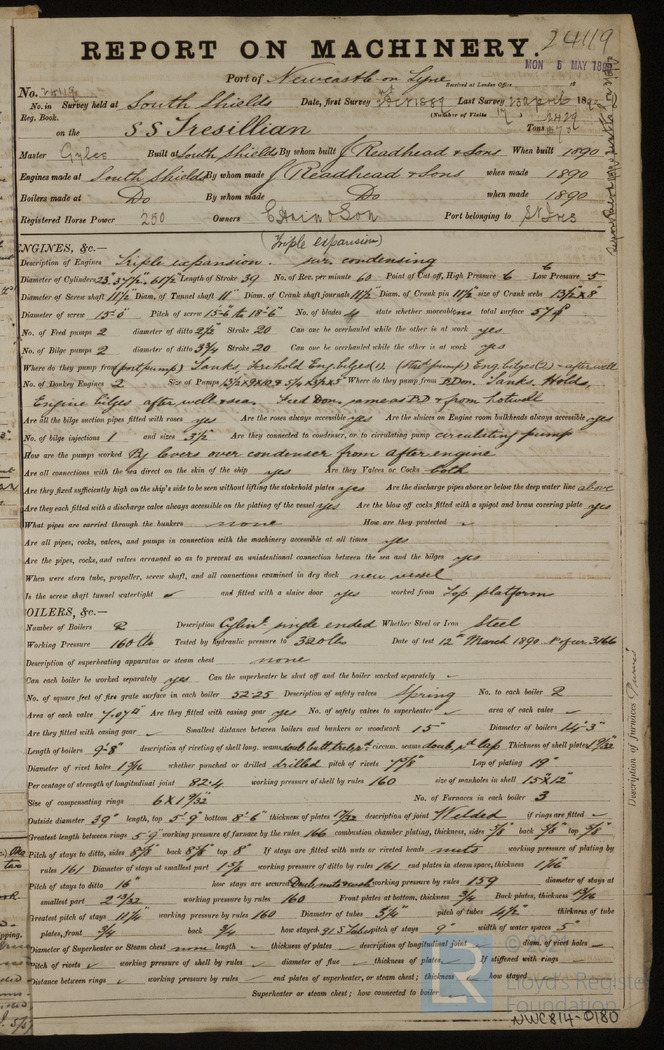 24119
REPORT ON MACHINERY.
MON 5 MAY 1890
Port of Newcastle on Tyne Received at London Office 18
No. 24119
No. in Survey held at South Shields Date, first Survey Last Survey 23 April 1890
Reg. Book. (Number of Visits
on the S.S. Tresillian Tons
Master Gyles Built at South Shields By whom built J Readhead & Sons When built 1890
Engines made at South Shields By whom made J Readhead & Sons when made 1890
Boilers made at Do By whom made Do when made 1890
Registered Horse Power 250 Owners E Hain & Son Port belonging to St Ives
ENGINES, &c.— (Triple expansion)
Description of Engines Triple expansion. sur. condensing
Diameter of Cylinders 23" 37½" 61½ Length of Stroke 39 No. of Rev. per minute 60 Point of Cut off, High Pressure ·6 Low Pressure ·5
Diameter of Screw shaft 11½ Diam. of Tunnel shaft 11" Diam. of Crank shaft journals 11½ Diam. of Crank pin 11½" size of Crank webs 13½ x 8"
Diameter of screw 15-0 Pitch of screw 15-6 to 18-6" No. of blades 4 state whether moveable no total surface 57
No. of Feed pumps 2 diameter of ditto 2½" Stroke 20 Can one be overhauled while the other is at work yes
No. of Bilge pumps 2 diameter of ditto 3¾ Stroke 20 Can one be overhauled while the other is at work yes
Where do they pump from (port pump) Tanks, Forehold Eng. bilges (1). (Star. pump) Eng. bilges (2) & after well
No. of Donkey Engines 2 Size of Pumps Where do they pump from B.Don. Tanks, Holds,
Engine bilges after well & sea. Feed Don. same as B.D & from hotwell
Are all the bilge suction pipes fitted with roses yes Are the roses always accessible yes Are the sluices on Engine room bulkheads always accessible yes
No. of bilge injections 1 and sizes 3½ Are they connected to condenser, or to circulating pump circulating pump
How are the pumps worked By levers over condenser from after engine
Are all connections with the sea direct on the skin of the ship yes Are they Valves or Cocks both
Are they fixed sufficiently high on the ship's side to be seen without lifting the stokehold plates yes Are the discharge pipes above or below the deep water line above
Are they each fitted with a discharge valve always accessible on the plating of the vessel yes Are the blow off cocks fitted with a spigot and brass covering plate yes
What pipes are carried through the bunkers none How are they protected ✓
Are all pipes, cocks, valves, and pumps in connection with the machinery accessible at all times yes
Are the pipes, cocks, and valves arranged so as to prevent an unintentional connection between the sea and the bilges yes
When were stern tube, propeller, screw shaft, and all connections examined in dry dock new vessel
Is the screw shaft tunnel watertight ✓ and fitted with a sluice door yes worked from Top platform
BOILERS, &c.—
Number of Boilers 2 Description Cylin. single ended Whether Steel or Iron Steel
Working Pressure 160 lb Tested by hydraulic pressure to 320 lbs Date of test 12th March 1890. No. of cer. 3166
Description of superheating apparatus or steam chest none
Can each boiler be worked separately yes Can the superheater be shut off and the boiler worked separately ✓
No. of square feet of fire grate surface in each boiler 52·25 Description of safety valves Spring No. to each boiler 2
Area of each valve 7·07" Are they fitted with easing gear yes No. of safety valves to superheater ✓ area of each valve ✓
Are they fitted with easing gear ✓ Smallest distance between boilers and bunkers or woodwork 15" Diameter of boilers 14-3"
Length of boilers 9-8" description of riveting of shell long. seams doub. butt, treb. riv. circum. seams doub. riv. lap Thickness of shell plates 1 9/32"
Diameter of rivet holes 1 3/16 whether punched or drilled drilled pitch of rivets 7 7/8" Lap of plating 19"
Percentage of strength of longitudinal joint 82·4 working pressure of shell by rules 160 size of manholes in shell 15 x 12"
Size of compensating rings 6 x 1 9/32 No. of Furnaces in each boiler 3
Outside diameter 39" length, top 5-9" bottom 8-6" thickness of plates 17/32 description of joint Welded if rings are fitted ✓
Greatest length between rings 5-9 working pressure of furnace by the rules 166 combustion chamber plating, thickness, sides 5/8 back 5/8 top 5/8
Pitch of stays to ditto, sides 8⅛" back 8⅛" top 8" If stays are fitted with nuts or riveted heads nuts working pressure of plating by
rules 161 Diameter of stays at smallest part 1 5/8 working pressure of ditto by rules 161 end plates in steam space, thickness 1 1/16"
Pitch of stays to ditto 16" how stays are secured Doub. nuts & wash. working pressure by rules 159 diameter of stays at
smallest part 2 3/32 working pressure by rules 160 Front plates at bottom, thickness ¾ Back plates, thickness 13/16
Greatest pitch of stays 11¼" working pressure by rules 160 Diameter of tubes 3¼" pitch of tubes 4½" thickness of tube
plates, front ¾ back ¾ how stayed 91 S. Tubes pitch of stays 9" width of water spaces 5"
Diameter of Superheater or Steam chest none length ✓ thickness of plates ✓ description of longitudinal joint ✓ diam. of rivet holes ✓
Pitch of rivets ✓ working pressure of shell by rules ✓ diameter of flue ✓ thickness of plates ✓ If stiffened with rings ✓
Distance between rings ✓ working pressure by rules ✓ end plates of superheater, or steam chest; thickness ✓ how stayed ✓
Superheater or steam chest; how connected to boiler ✓
Description of furnaces Purves
© 2021
LR
Lloyd's Register
Foundation
NWC814-0180